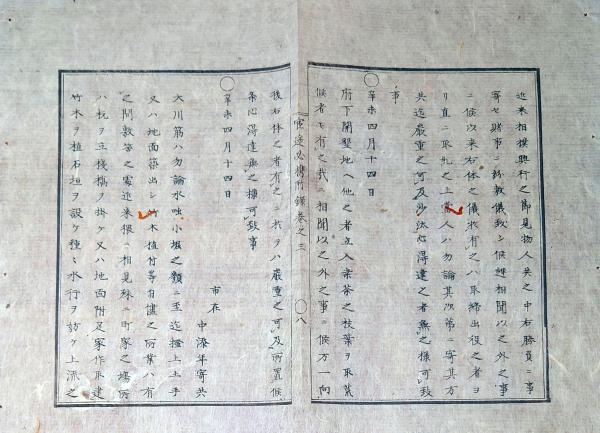 近来相撲興行之節見物人共之中右勝負ニ事
寄セ賭事ニ紛敷儀致シ候趣相聞以之外之事
ニ候以来右体之儀於有之ハ取締出役之者ヨ
リ直ニ取糺之上当人ハ勿論其次第ニ寄其方
共迄厳重之可及沙汰心得違之者無之様可致
事
〇
辛未四月十四日
府下開墾地ヘ他之者立入桑茶之枝葉ヲ取荒
候者モ有之哉ニ相聞以之外之事ニ候万一向
後右体之者有之ニ於テハ厳重之可及所置候
条心得違無之様可致事
〇
辛未四月十四日
市在
中添年寄共
大川筋ハ勿論水吐小堀之類ニ至迄揚上土手
又ハ地面築出シ竹木植付等自儘之所業ハ有
之間敷筈之処近来猥ニ相見殊ニ町家之場所
ハ杭ヲ立桟橋ヲ掛ケ又ハ地面附足家作取建
竹木ヲ植石垣ヲ設ケ種々水行ヲ妨ケ上流之
附録巻之三
〇八